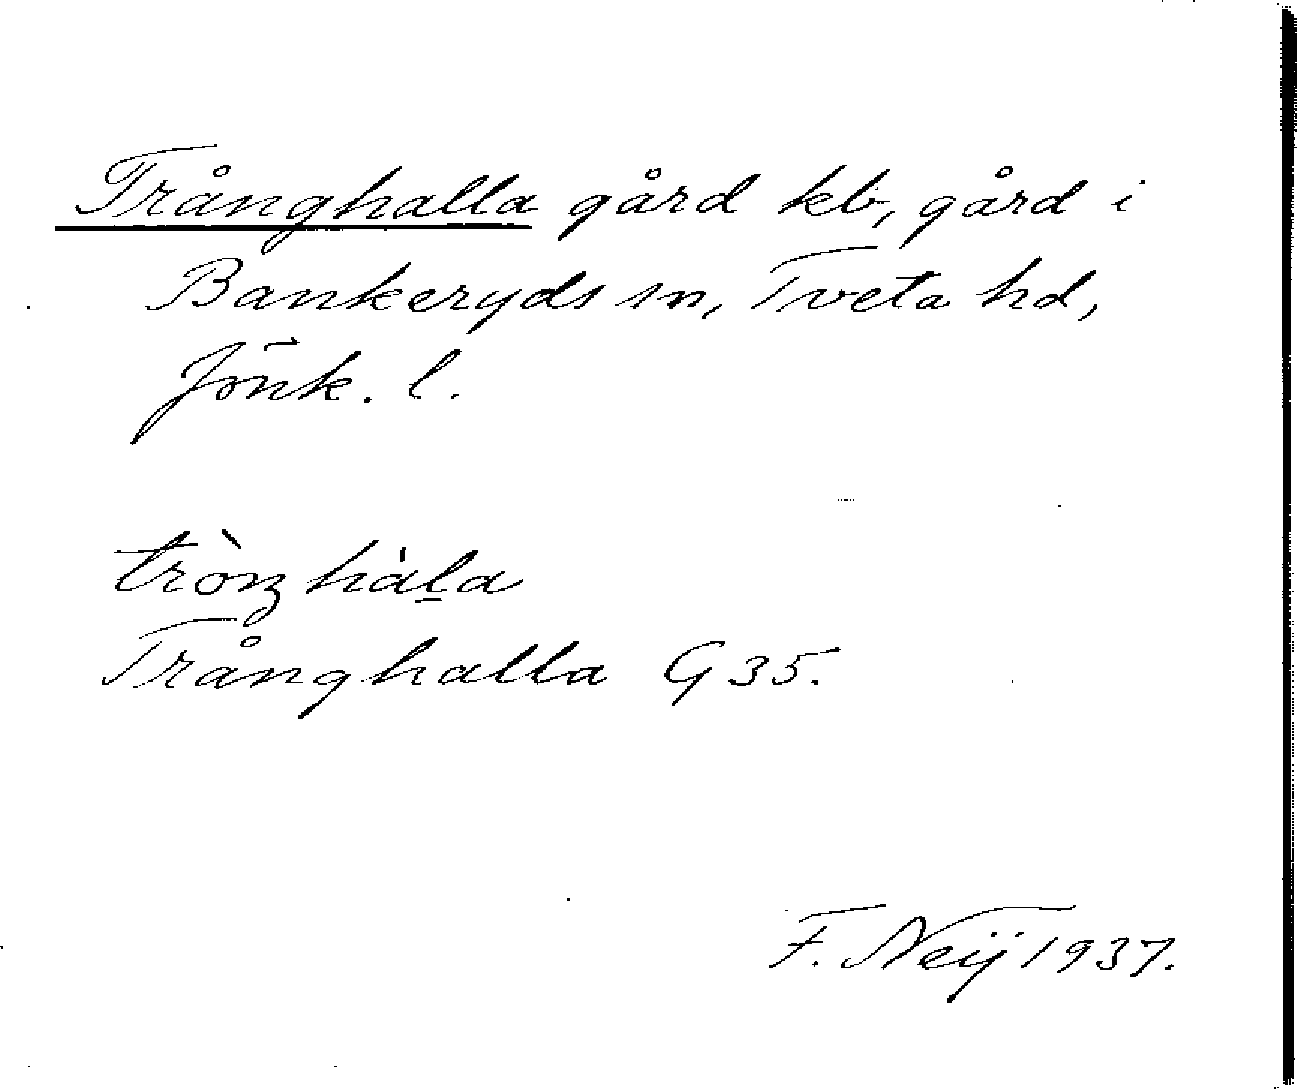 Trånghalla gård kb, gård i
Bankeryds sn, Tveta hd,
Jönk. l.
tròŋ hàl̠a
Trånghalla G 35.
F. Neij 1937.